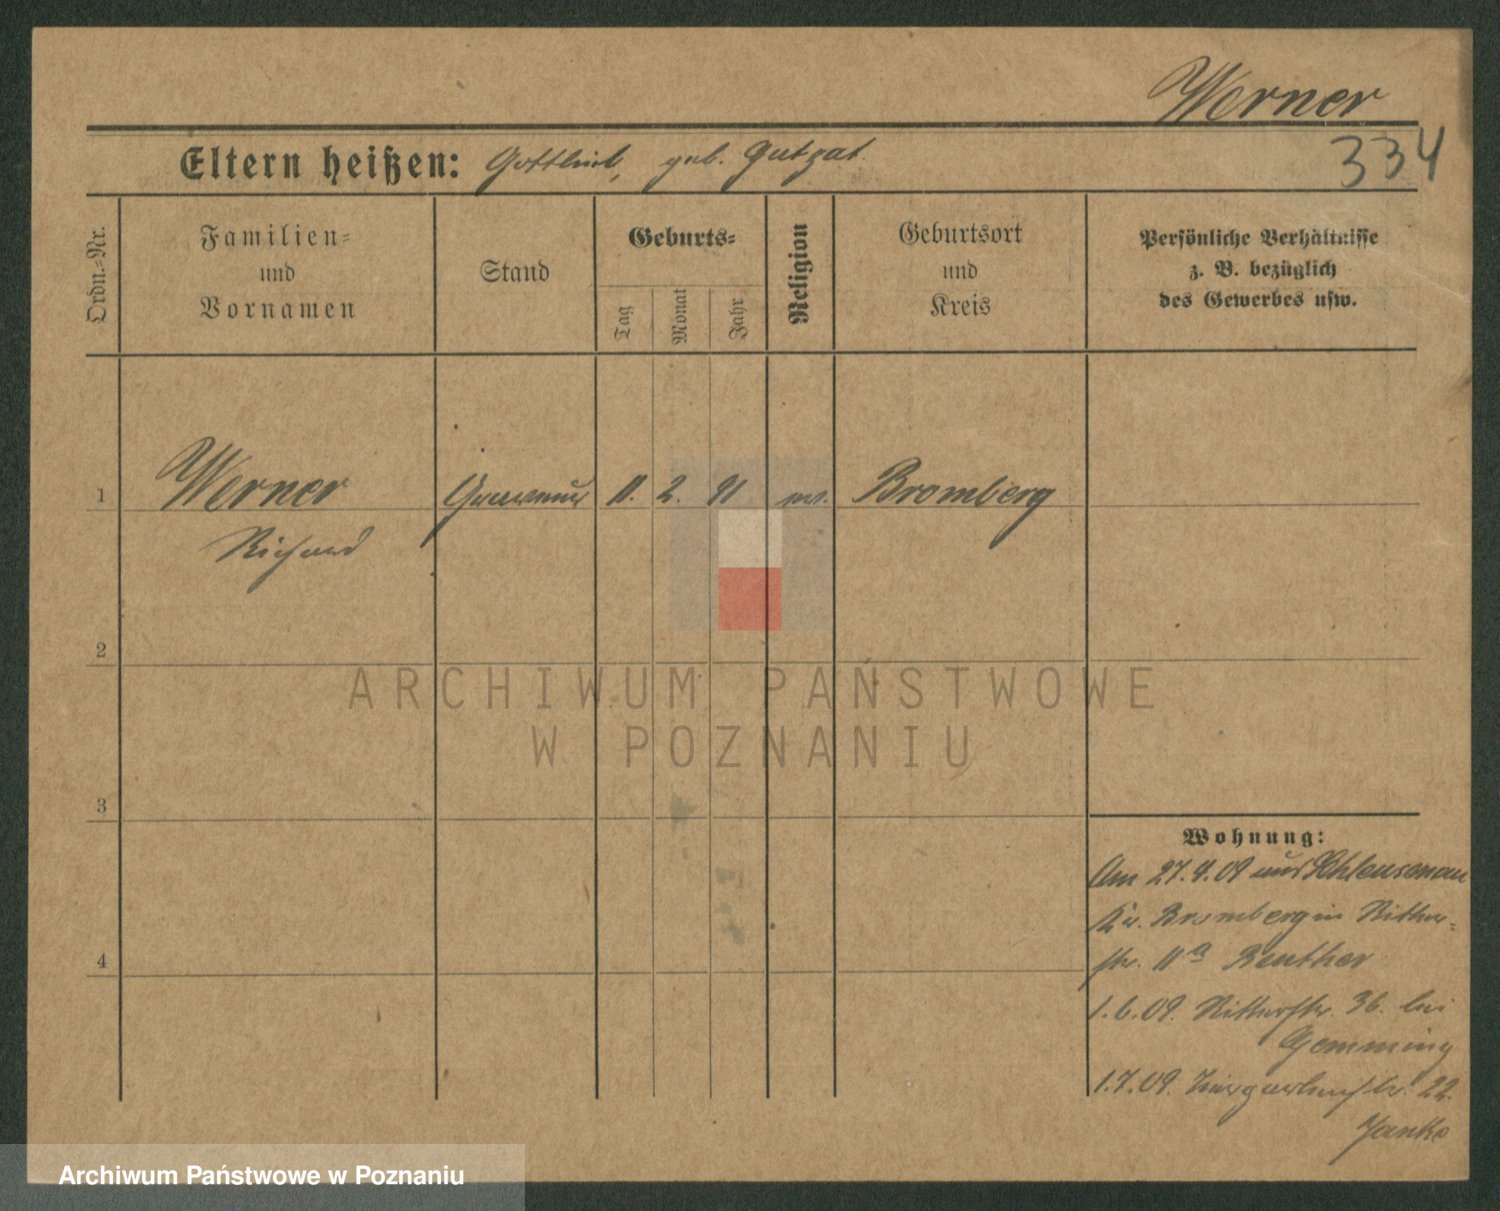 Werner
334
Eltern heißen: Gottlieb, geb. Gutzat
Ordn.-Nr.
Familien-
und
Vornamen
Stand
Geburts-
Tag
Monat
Jahr
Religion
Geburtsort
und
Kreis
Persönliche Verhältnisse
z. B. bezüglich
des Gewerbes usw.
1 Werner Graveur 11. 2. 91 ev. Bromberg
Richard
2
ARCHIWUM PAŃSTWOWE
W POZNANIU
3
Wohnung:
Am 27.4.09 aus Schleusenau
Kr. Bromberg in Ritter-
str. 11a Beuther
4
1.6.09. Ritterstr. 36. bei
Gemming
1.7.09. Tiergartenstr. 22.
Janke
Archiwum Państwowe w Poznaniu